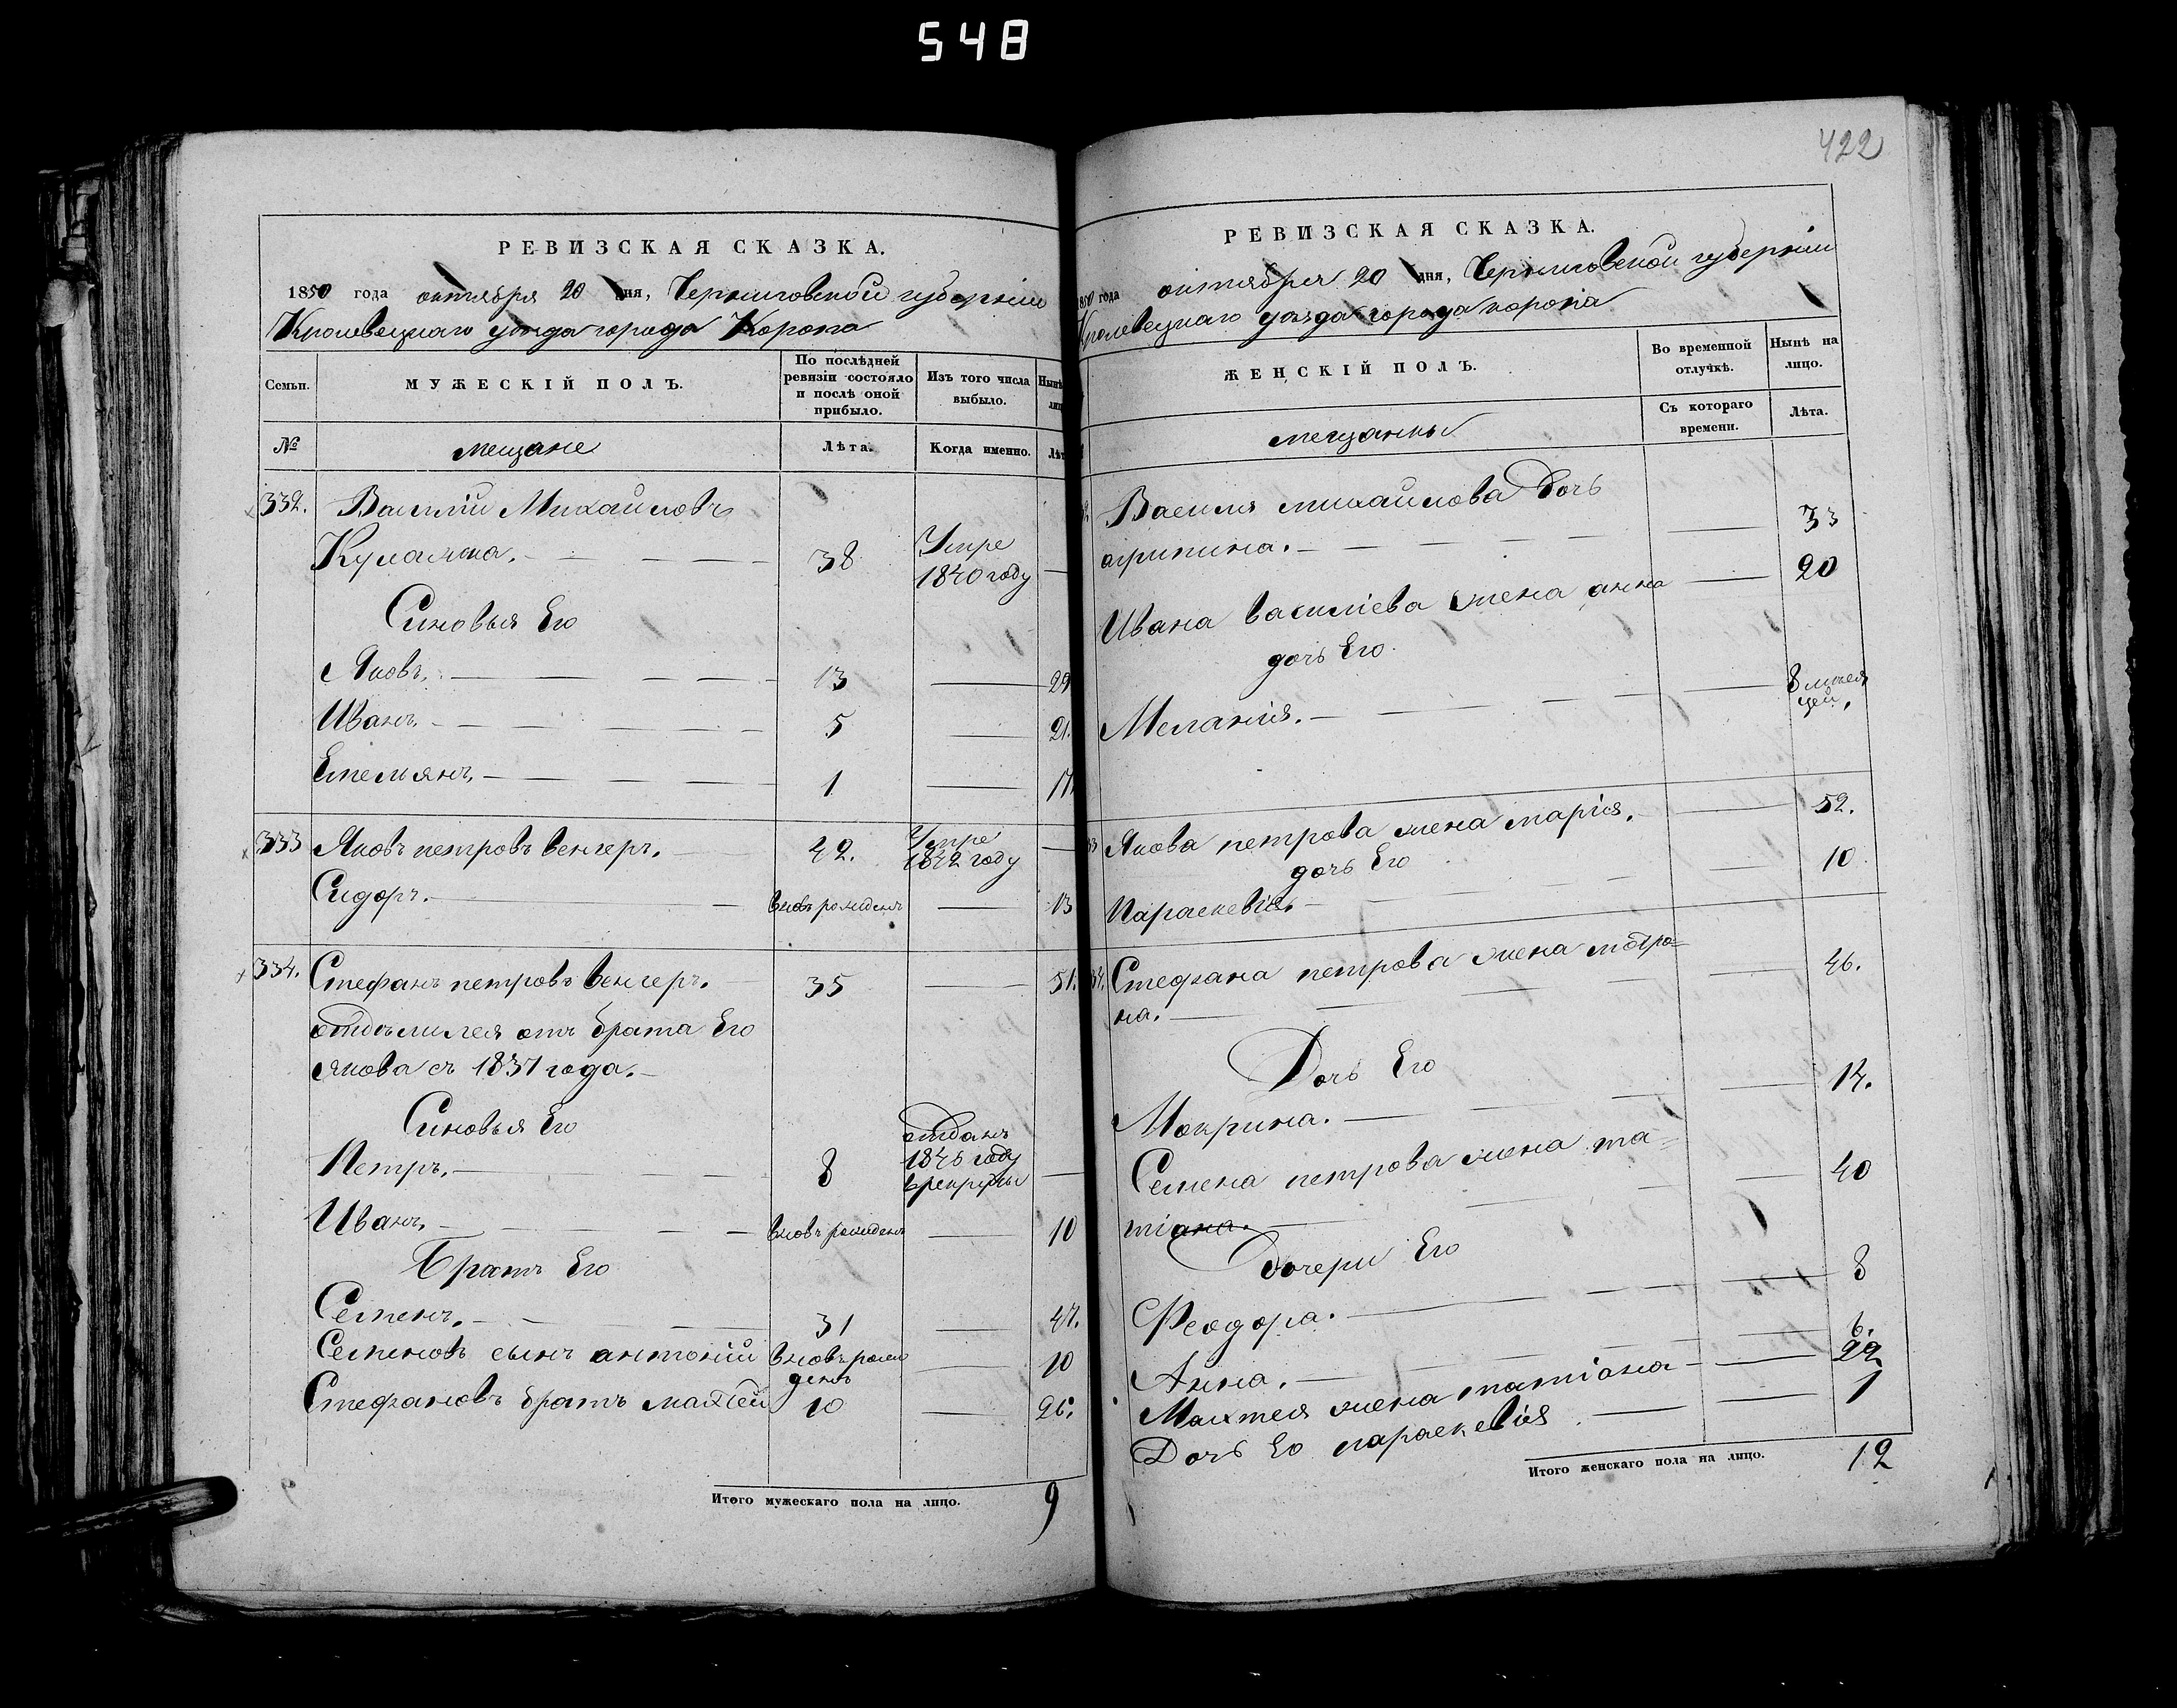 548
422
РЕВИЗСКАЯ СКАЗКА.
1850 года октября 20 дня, Черниговской губерніи
Кролевецкаго уѣзда города Коропа
Семьи.
МУЖЕСКІЙ ПОЛЪ.
По послѣдней ревизіи состояло и послѣ оной прибыло.
Изъ того числа выбыло.
№
мещане
Лѣта.
Когда именно.
332. Василій Михайловъ
Кулаяма. 38 Умре 1840 году
Синовья Его
Яковъ. 13 29
Иванъ. 5 21.
Емельянъ. 1 17
333 Яковъ петровъ венгеръ. 42. Умре 1842 году
Сидоръ. вновь рожденъ 13
334. Стефанъ петровъ венгеръ. 35 51.
отдѣлился отъ брата Его
Якова съ 1837 года.
Синовья Его
Петръ. 8 отданъ 1846 году в рекруты
Иванъ. вновь рожденъ 10
Братъ Его
Семенъ. 31 47.
Семеновъ сынъ антоній вновь рожденъ 10
Стефановъ братъ матѳей 10 26.
Итого мужескаго пола на лицо. 9
РЕВИЗСКАЯ СКАЗКА.
1850 года октября 20 дня, Черниговской губерніи
Кролевецкаго уѣзда города коропа
ЖЕНСКІЙ ПОЛЪ.
Во временной отлучкѣ.
Нынѣ на лицо.
мещанки
Съ котораго времени.
Лѣта.
Василя михайлова дочь
агрипина. 33
Ивана василіева жена анна 20
дочь Его
Меланія. 8 месяцей,
Якова петрова жена марія. 52.
дочь Его
Параскевія. 10
Стефана петрова жена мотро=
на. 46.
Дочь Его
Мокрина. 14.
Семена петрова жена та=
тіана. 40
дочери Его
Феодора. 8
Анна. 6.
Махтея жена татіана 22
Дочь Его параскевія 1
Итого женскаго пола на лицо. 12